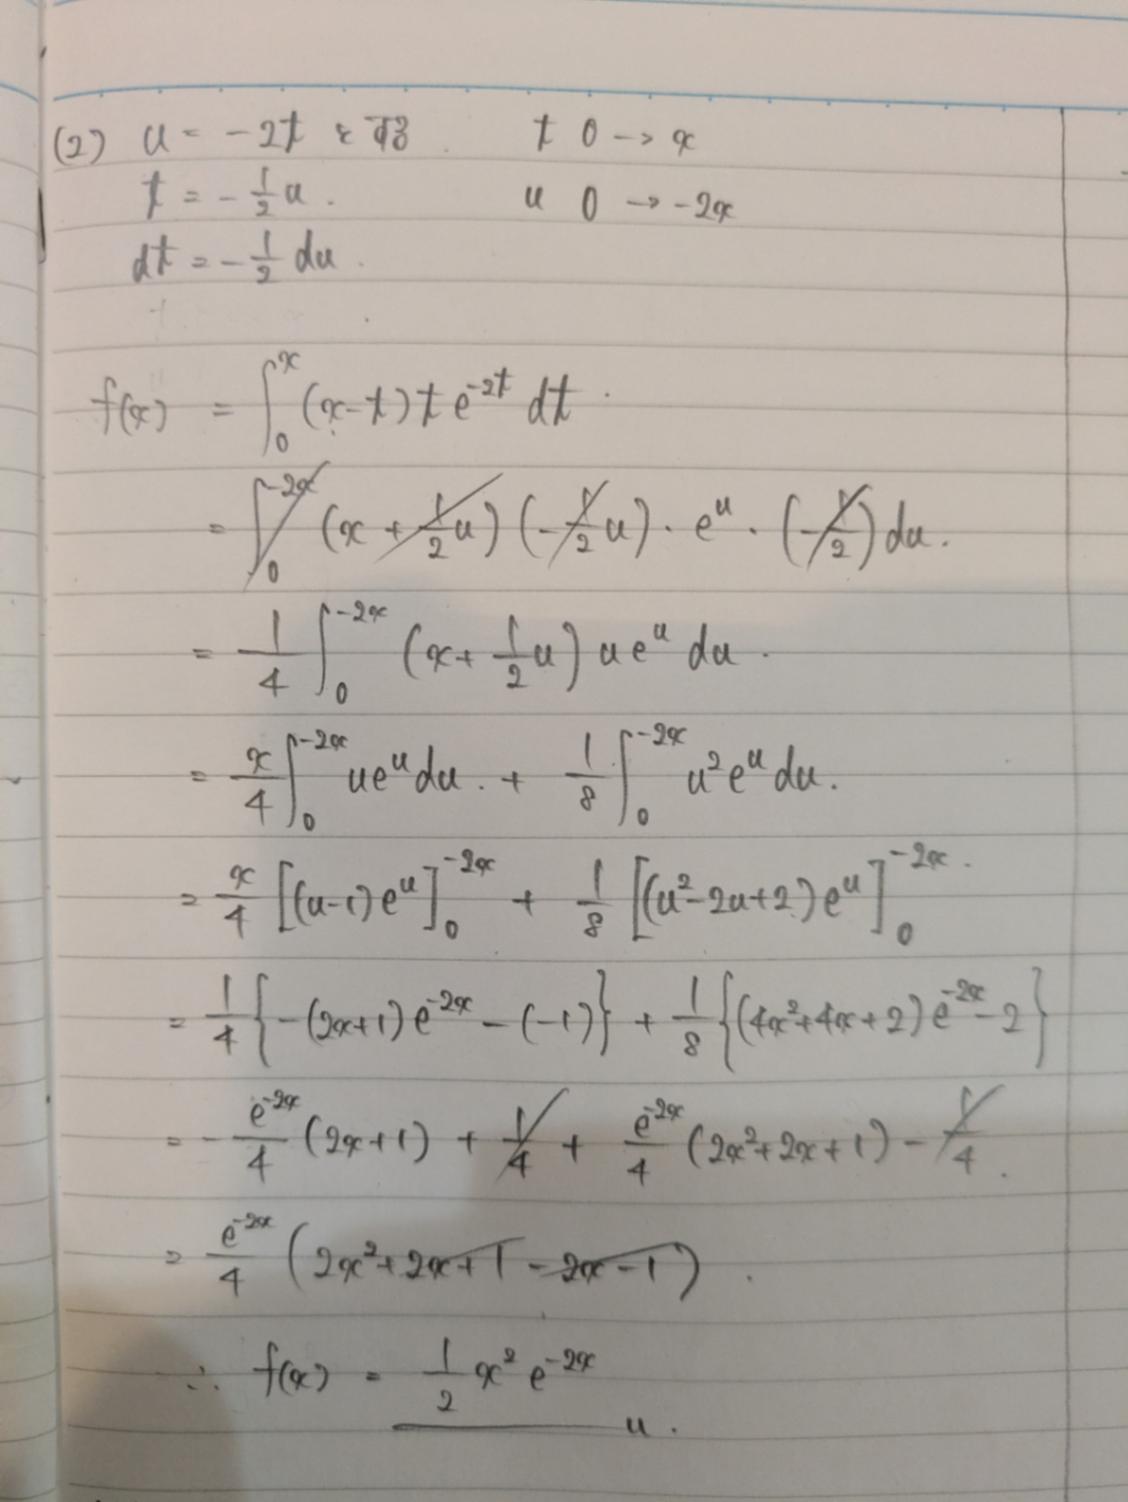 (2) u = -2t とする. t 0 → x
t = -1/2 u. u 0 → -2x
dt = -1/2 du.
f(x) = ∫_0^x (x-t) t e^{-2t} dt.
= ∫_0^{-2x} (x + 1/2 u) (-1/2 u) · e^u · (-1/2) du.
= 1/4 ∫_0^{-2x} (x + 1/2 u) u e^u du.
= x/4 ∫_0^{-2x} u e^u du. + 1/8 ∫_0^{-2x} u^2 e^u du.
= x/4 [(u-1) e^u]_0^{-2x} + 1/8 [(u^2 - 2u + 2) e^u]_0^{-2x}.
= 1/4 {-(2x+1) e^{-2x} - (-1)} + 1/8 {(4x^2 + 4x + 2) e^{-2x} - 2}
= - e^{-2x}/4 (2x+1) + 1/4 + e^{-2x}/4 (2x^2 + 2x + 1) - 1/4.
= e^{-2x}/4 (2x^2 + 2x + 1 - 2x - 1).
∴ f(x) = 1/2 x^2 e^{-2x}